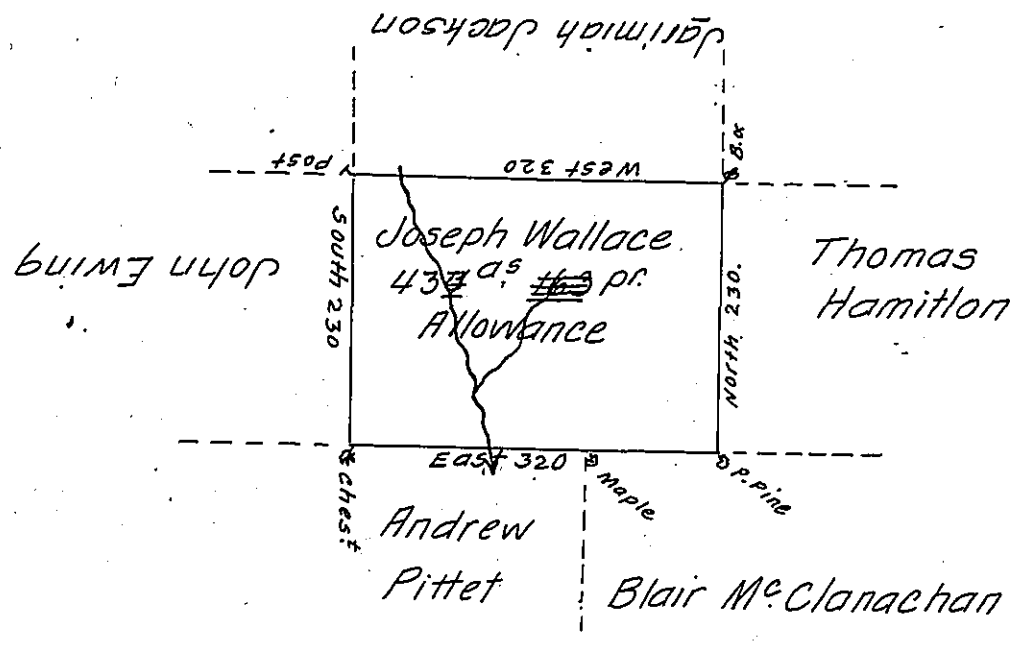 Jarimiah Jackson
Post
West 320
B.o
South 230
Joseph Wallace
as pr.
Allowance
North 230.
John Ewing
Thomas
Hamitlon
East 320
chest
Maple
P. Pine
Andrew
Pittet
Blair Mc. Clanachan